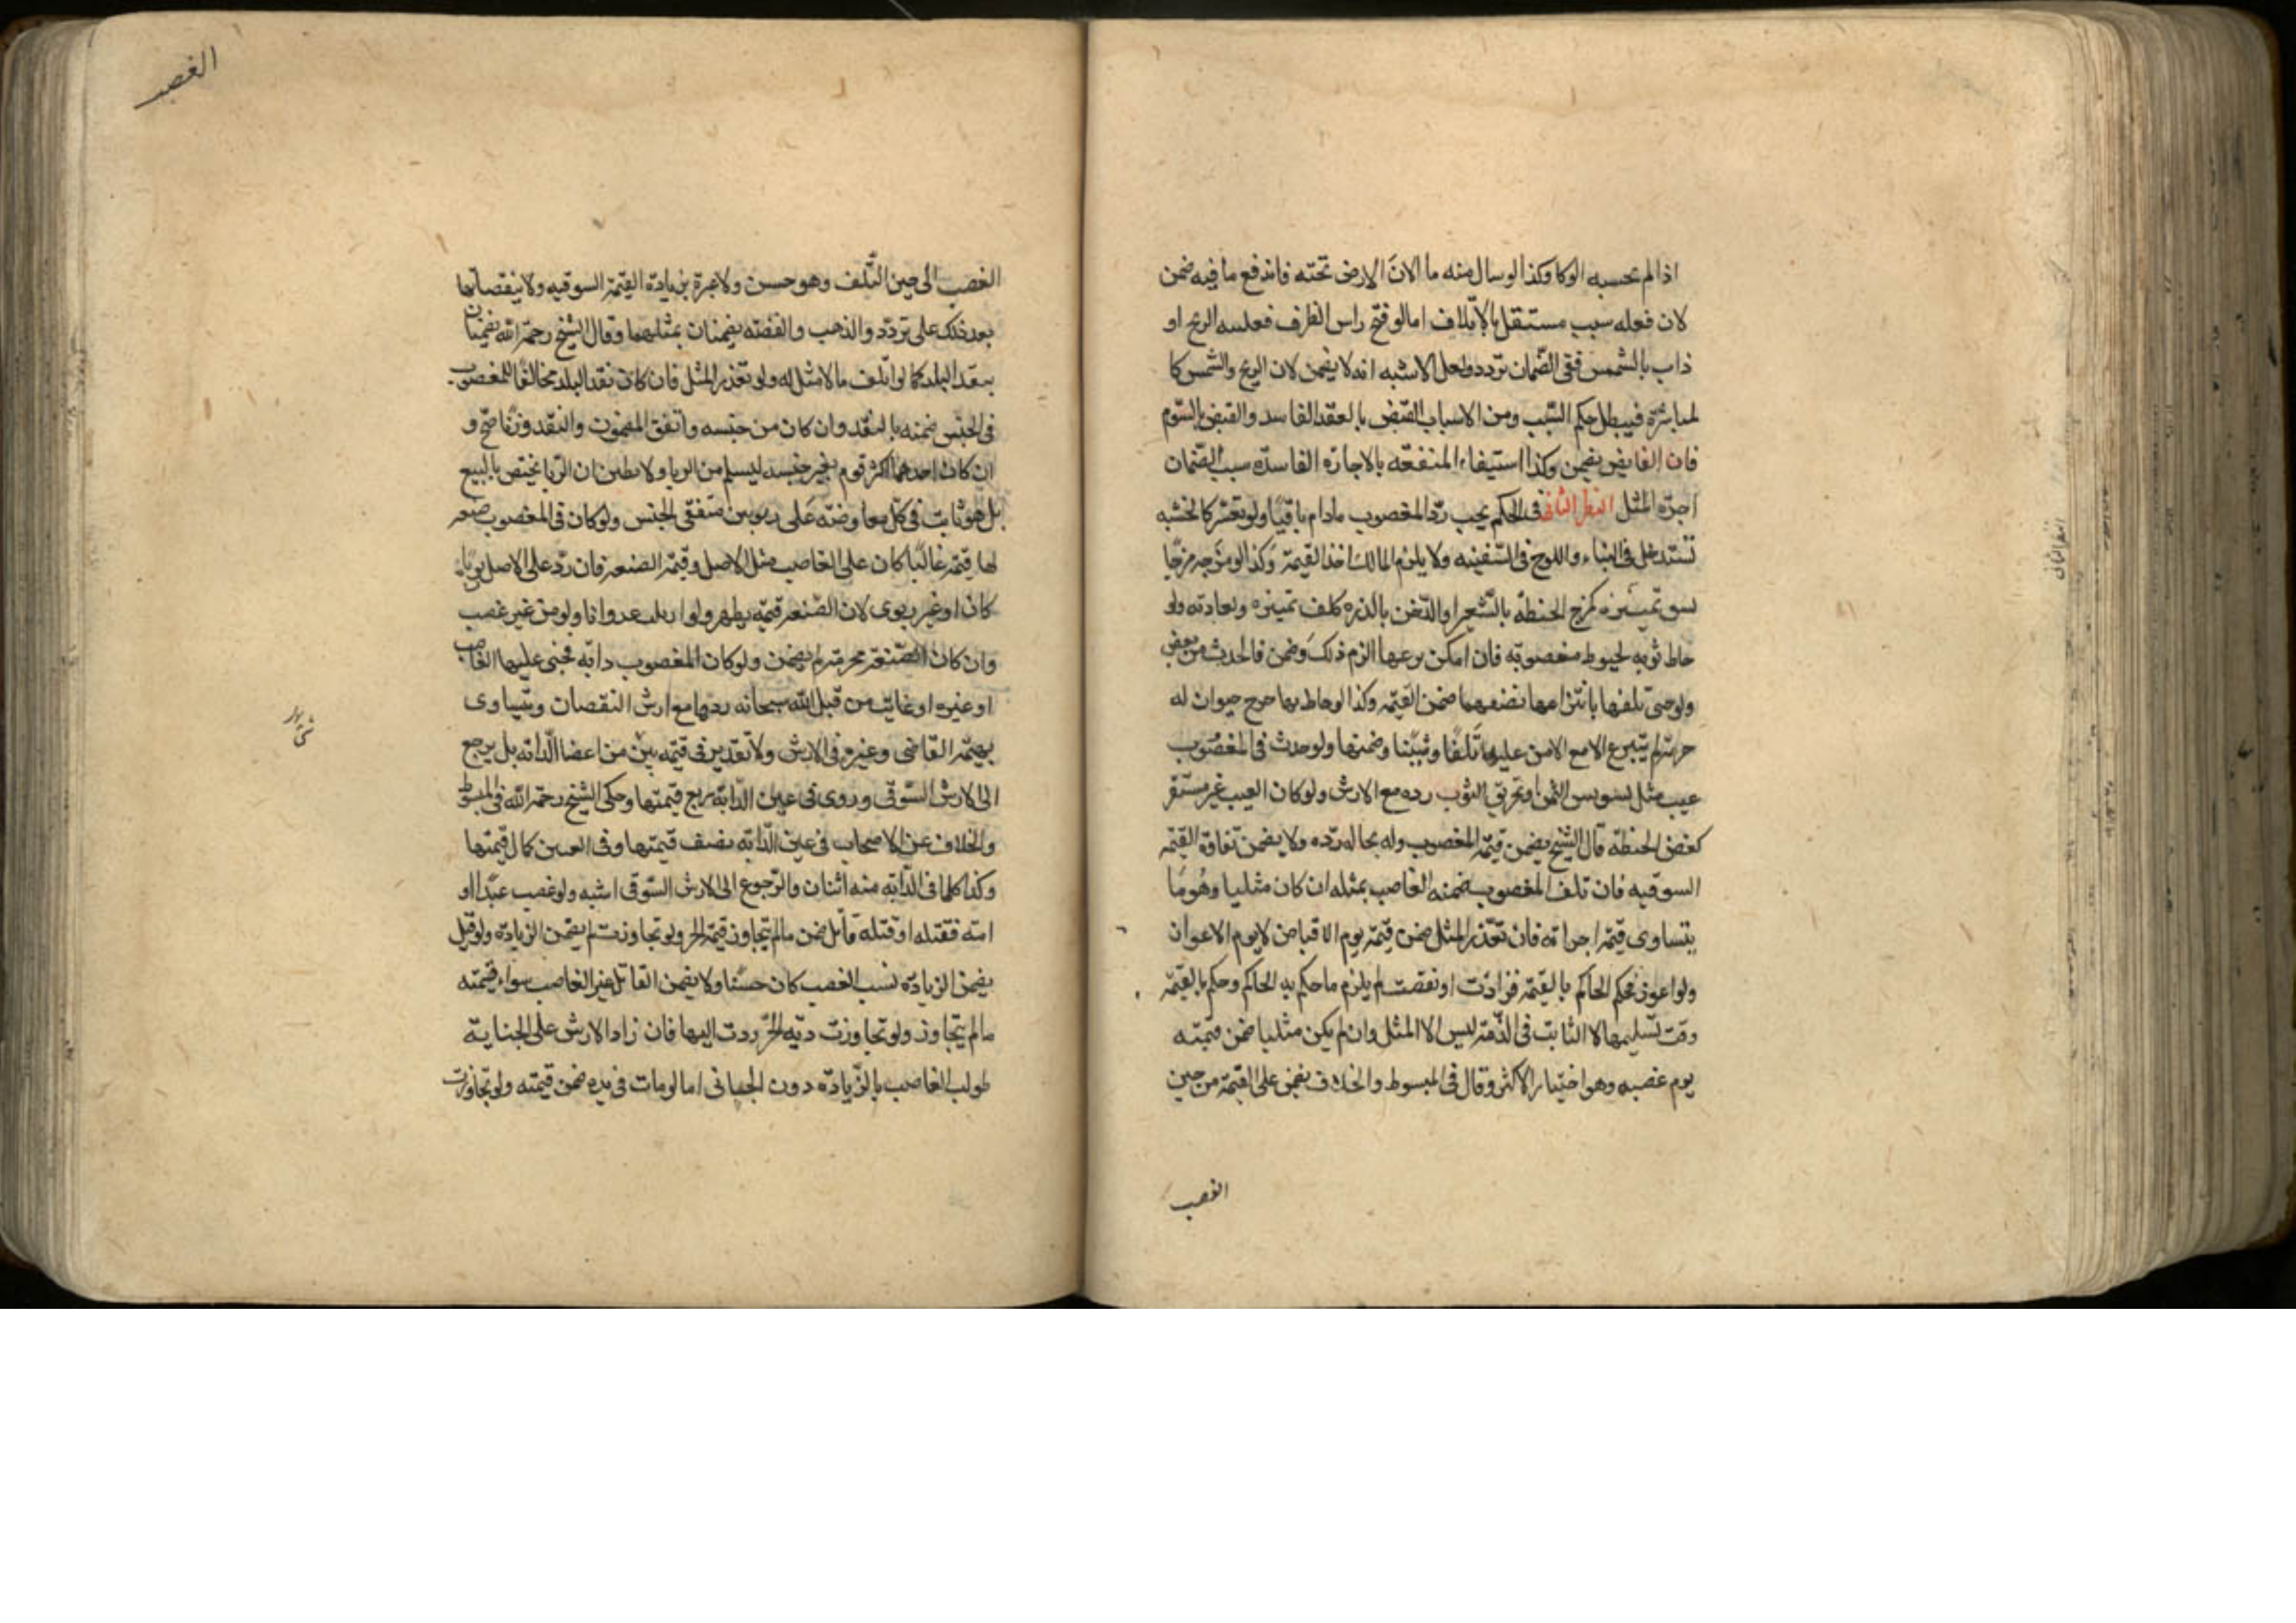 اذا لم يحبسه الوكا وكذا لو سال منه ما الان الارض تحته فاندفع ما فيه ضمن
لان فعله سبب مستقل بالاتلاف اما لو فتح راس الظرف فعلسه الريح او
ذاب بالشمس ففى الضمان تردد ولعل الاشبه انه لا يضمن لان الريح والشمس كا
لمباشرة فيبطل حكم السبب ومن الاسباب القبض بالعقد الفاسد والقبض بالسوم
فان القابض يضمن وكذا استيفاء المنفعه بالاجاره الفاسده سبب الضمان
اجرة المثل النظر الثانى فى الحكم يجب رد المغصوب مادام باقيا ولو تعسر كالخشبه
تستدخل فى البناء واللوح فى السفينه ولا يلزم المالك اخذ القيمة وكذا لو مزجه مزجا
يسوى تمييزه كمزج الحنطة بالشعير او الدخن بالذره كلف تمييزه واعادته ولو
خاط ثوبه بخيوط مغصوبه فان امكن نزعها الزم ذلك وضمن ما يحدث من نقص
ولو خشى تلفها بانتزاعها لضعفها ضمن القيمة وكذا لو خاط بها جرح حيوان له
حرمة لم ينتزع الا مع الامن عليه تلفا وشينا وضمنها ولو حدث فى المغصوب
عيب مثل تسويس التمر او تخريق الثوب رده مع الارش ولو كان العيب غير مستقر
كعفن الحنطة قال الشيخ يضمن قيمة المغصوب وله بحاله رده ولا يضمن تفاوة القيمة
السوقيه فان تلف المغصوب ضمنه الغاصب بمثله ان كان مثليا وهو ما
يتساوى قيمة اجزائه فان تعذر المثل ضمن قيمته يوم الاقباض لا يوم الاعواز
ولو اعوز فحكم الحاكم بالقيمة فزادت او نقصت لم يلزم ما حكم به الحاكم وحكم بالقيمة
وقت تسليمها لان الثابت فى الذمة ليس الا المثل وان لم يكن مثليا ضمن قيمته
يوم غصبه وهو اختيار الاكثر وقال فى المبسوط والخلاف يضمن على القيمة من حين
الغصب
النظر الثانى
الغصب
الغصب الى حين التلف وهو حسن ولا عبرة بزيادة القيمة السوقيه ولا بنقصانها
بعد ذلك على تردد والذهب والفضه يضمنان بمثلهما وقال الشيخ رحمه الله يضمنان
بنقد البلد كما لو اتلف ما لا مثل له ولو تعذر المثل فان كان نقد البلد مخالفا للمغصوب
فى الجنس ضمنه بالنقد وان كان من جنسه واتفق المضمون والنقد وزنا صح و
ان كان احدهما اكثر قوم بغير جنسه ليسلم من الربا ولا يظن ان الربا يختص بالبيع
بل هو ثابت فى كل معاوضه على ربويين متفقى الجنس ولو كان فى المغصوب صنعة
لها قيمة غالبا كان على الغاصب مثل الاصل وقيمة الصنعة فان زاد على الاصل ربويا
كان او غير ربوى لان الصنعة قيمة يظهر ولو ازيلت عدوانا ولو من غير غصب
وان كان الصنعة محرمة لم يضمن ولو كان المغصوب دابه فجنى عليها الغاصب
او غيره او عابت من قبل الله سبحانه ردها مع ارش النقصان ويتساوى
بهيمة القاضى وغيره فى الارش ولا تقدير فى قيمة شئ من اعضا الدابه بل يرجع
الى الارش السوقى وروى فى عين الدابة ربع قيمتها وحكى الشيخ رحمه الله فى المبسوط
والخلاف عن الاصحاب فى عين الدابه نصف قيمتها وفى العينين كمال قيمتها
وكذا كلما فى الدابه منه اثنان والرجوع الى الارش السوقى اشبه ولو غصب عبدا او
امته فقتله او قتله قاتل ضمن ما لم يتجاوز قيمة الحر ولو تجاوزت لم يضمن الزيادة ولو قيل
يضمن الزيادة بسبب الغصب كان حسنا ولا يضمن القاتل غير الغاصب سواء قيمته
ما لم يتجاوز ولو تجاوزت ديه الحر ردت اليها فان زاد الارش على الجناية
طولب الغاصب بالزيادة دون الجانى اما لو مات فى يده ضمن قيمته ولو تجاوزت